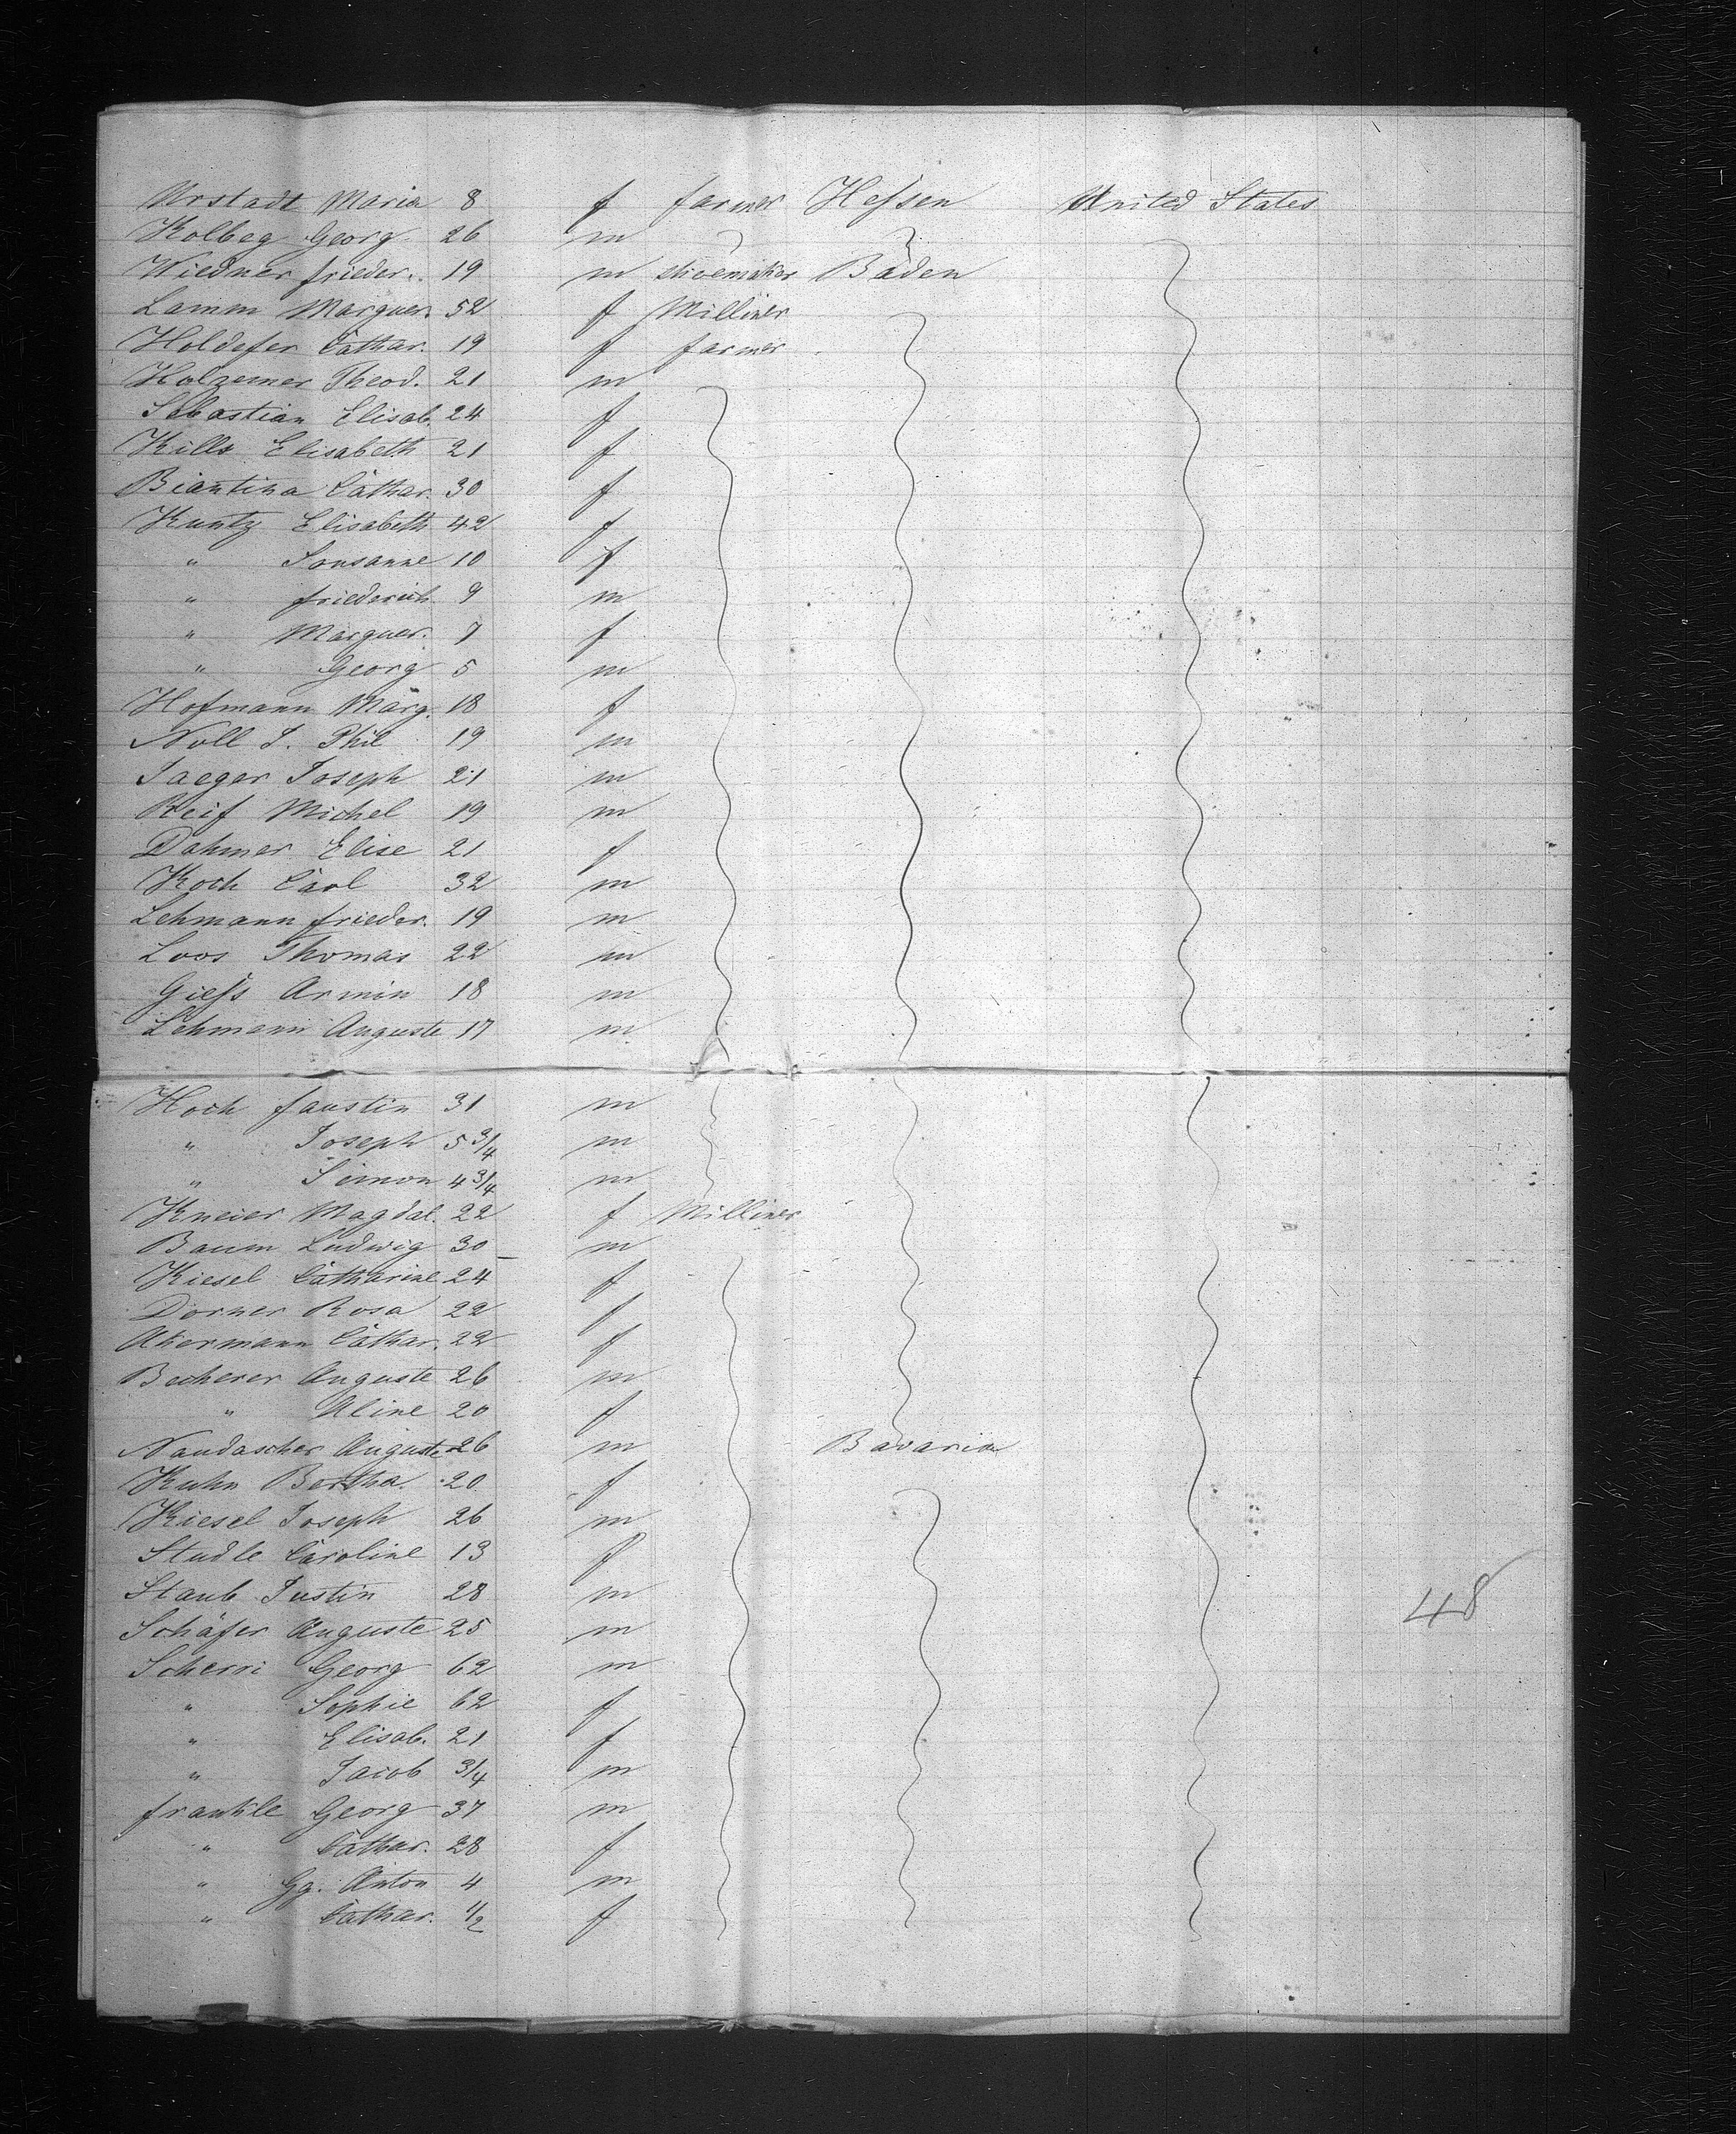 Urstadt Maria 8 f farmer Hessen United States
Kolbeg Georg 26 m
Wiedner frieder. 19 m shoemaker Baden
Lamm Marguer. 52 f Milliner
Holdefer Cathar. 19 f farmer
Holzemer Theod. 21 m
Sebastian Elisab. 24 f
Kills Elisabeth 21 f
Biantina Cathar. 30 f
Kuntz Elisabeth 42 f
" Sousanne 10 f
" friederich 9 m
" Marguer. 7 f
" Georg 5 m
Hofmann Marg. 18 f
Noll J. Phil 19 m
Jaeger Joseph 21 m
Reif Michel 19 m
Dahmer Elise 21 f
Koch Carl 32 m
Lehmann frieder. 19 m
Loos Thomas 22 m
Giess Armin 18 m
Lehmann Auguste 17 m
Hoch faustin 31 m
" Joseph 5 3/4 m
" Simon 4 3/4 m
Kneier Magdal. 22 f Milliner
Baum Ludwig 30 m
Kiesel Catharine 24 f
Dorner Rosa 22 f
Akermann Cathar. 22 f
Becherer Auguste 26 m
" Aline 20 f
Naudascher Auguste 26 m Bavaria
Kuhn Bertha 20 f
Kiesel Joseph 26 m
Studle Caroline 13 f
Staub Justin 28 m
Schäfer Auguste 25 m
48
Scherri Georg 62 m
" Sophie 62 f
" Elisab. 21 f
" Jacob 3/4 m
frankle Georg 37 m
" Cathar. 28 f
" Gg. Anton 4 m
" Cathar. 1/2 f